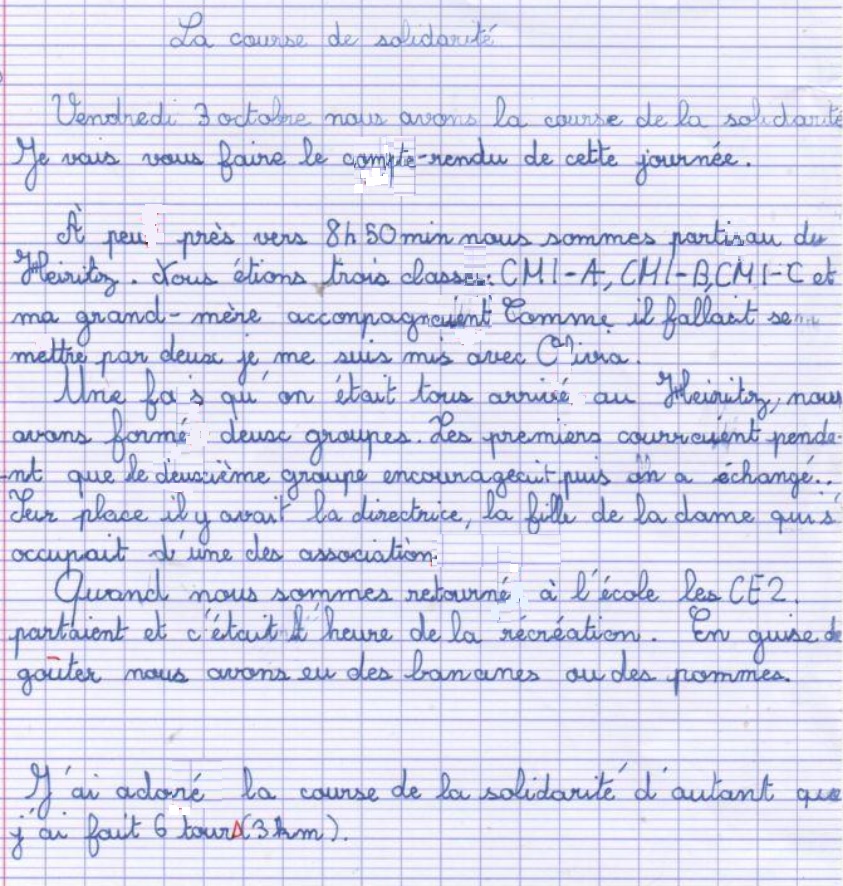 La course de solidarité
Vendredi 3 octobre nous avons la course de la solidarité
Je vais vous faire le compte-rendu de cette journée.
À peu près vers 8h50min nous sommes partis au du
Heiritz. Nous étions trois classes: CM1-A, CM1-B, CM1-C et
ma grand-mère accompagnaient Comme il fallait se
mettre par deux je me suis mis avec
Une fois qu'on était tous arrivé au Heiritz, nous
avons formé deux groupes. Les premiers courraient penda-
nt que le deuxième groupe encourageait puis on a échangé..
Sur place il y avait la directrice, la fille de la dame qui s'
occupait d'une des association.
Quand nous sommes retourné à l'école les CE2.
partaient et c'était l'heure de la récréation. En guise de
goûter nous avons eu des bananes ou des pommes.
J'ai adoré la course de la solidarité d'autant que
j'ai fait 6 tours (3 km).